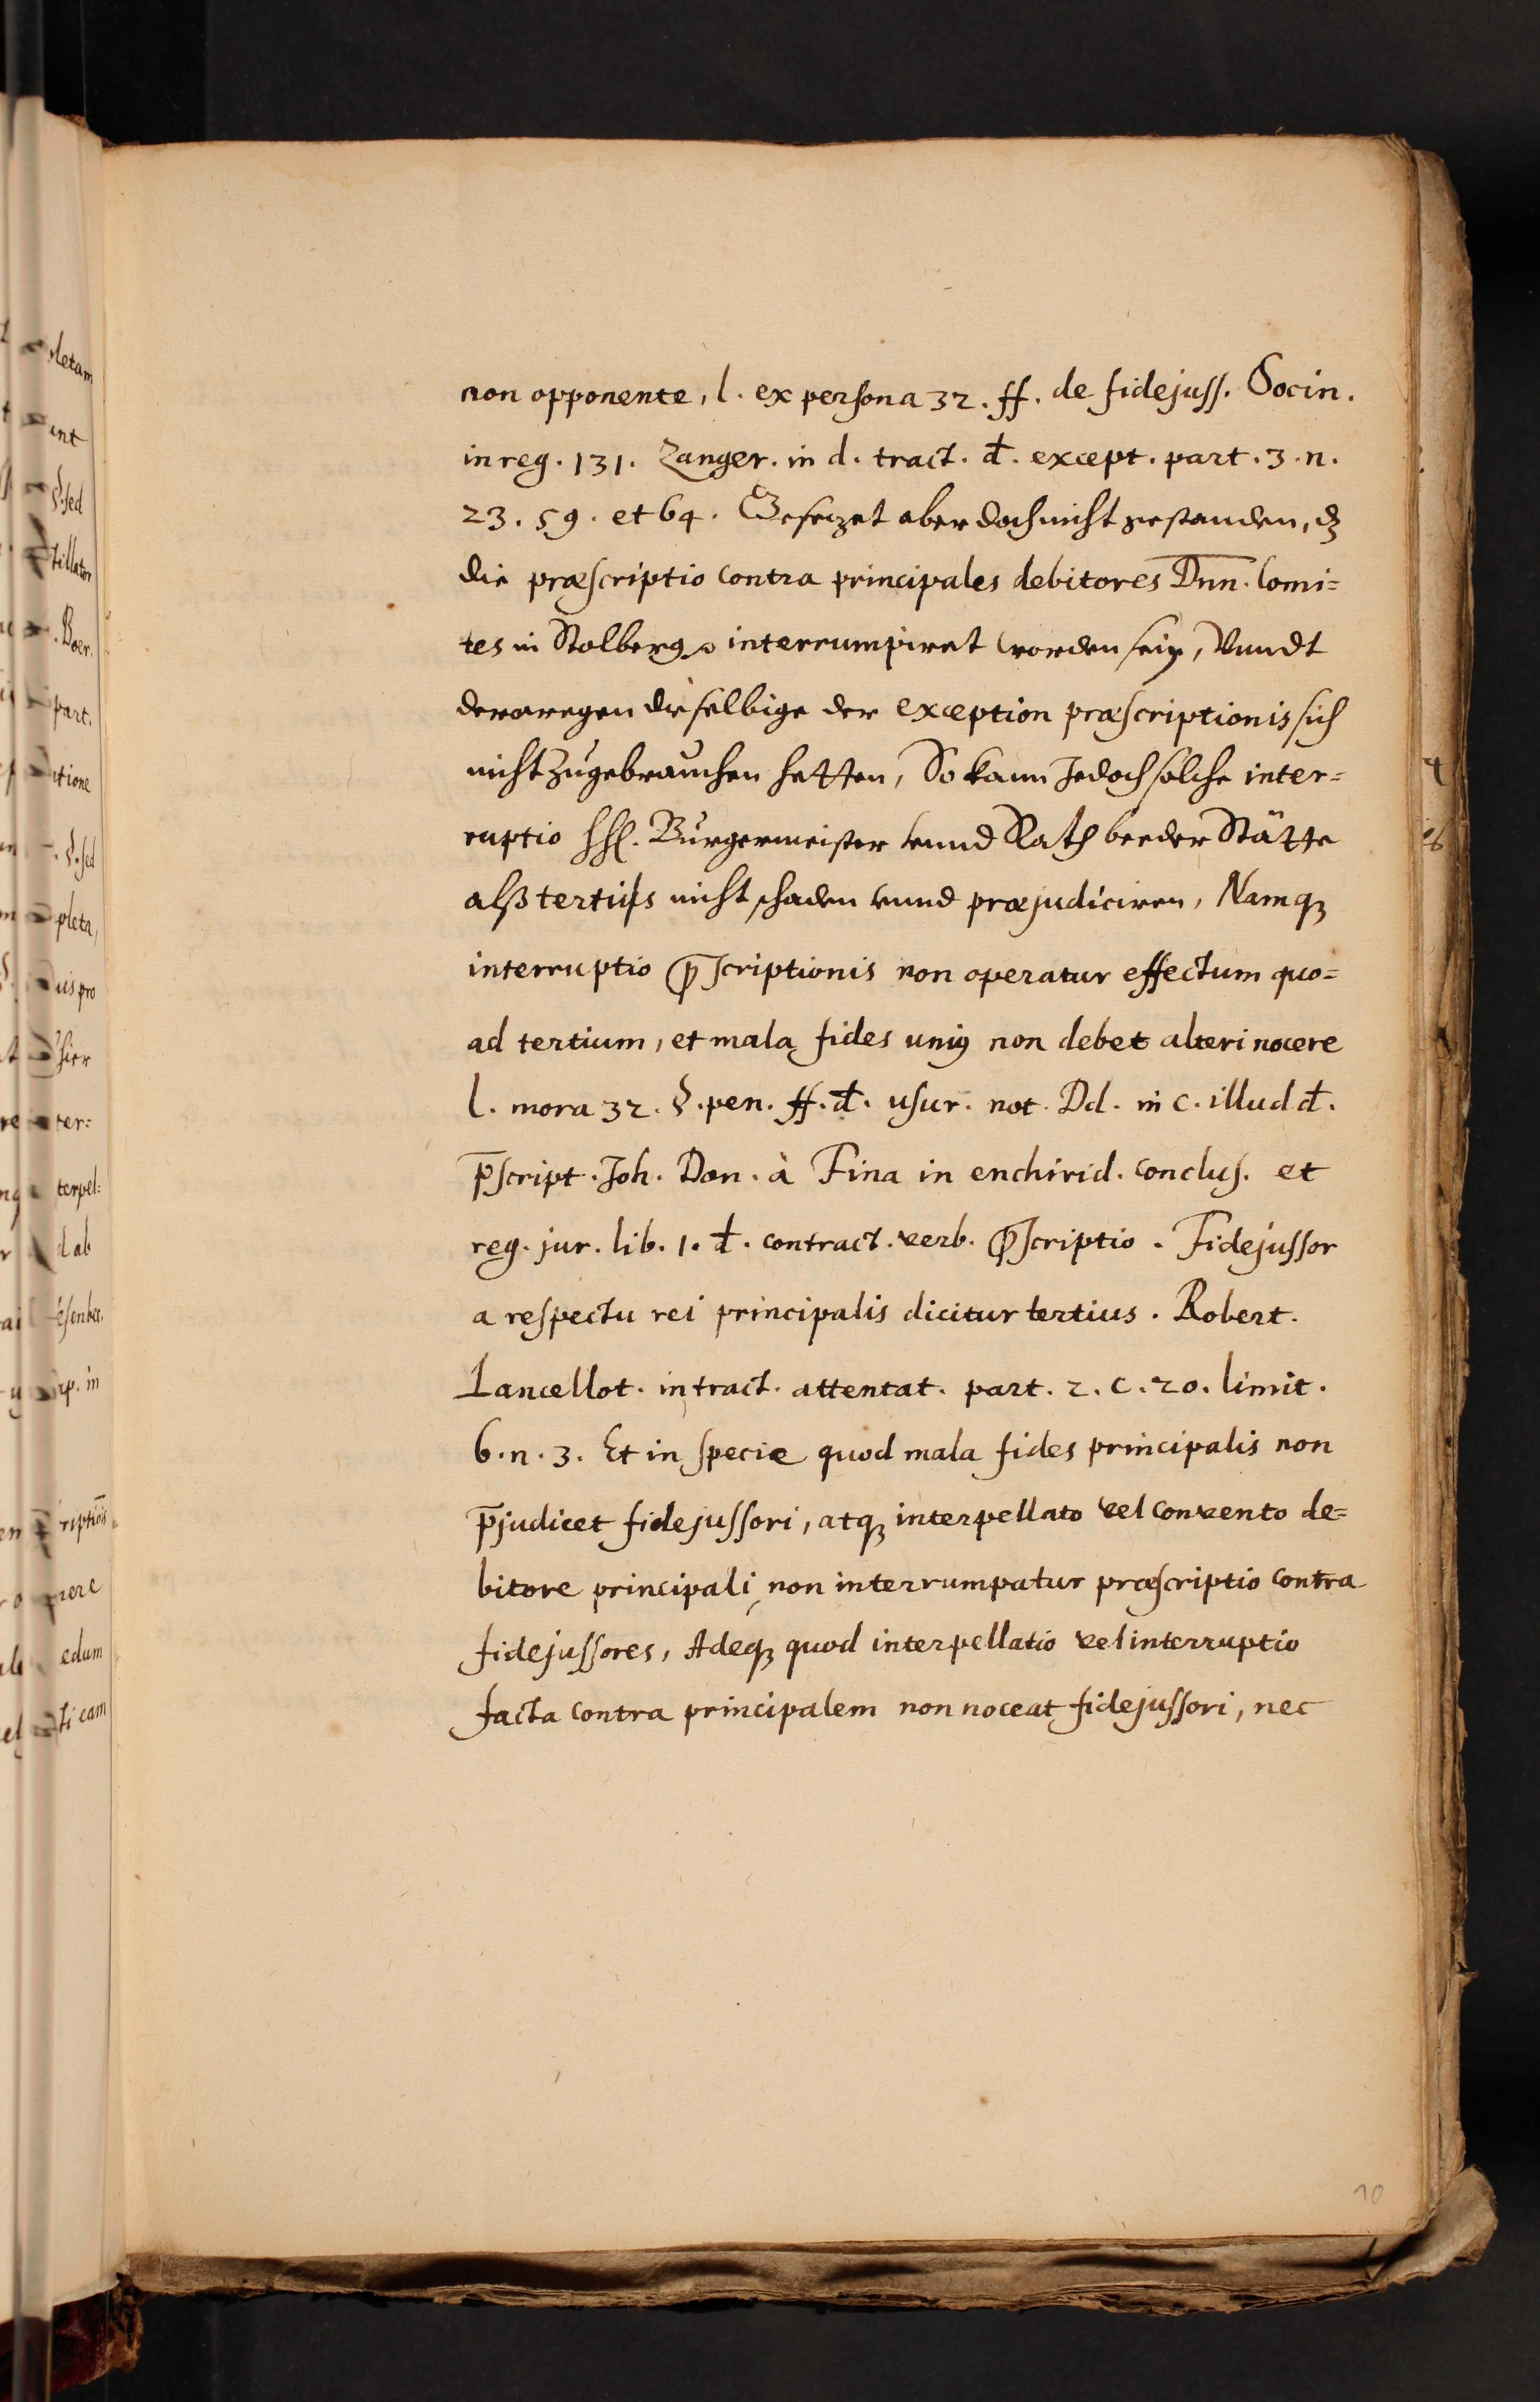 non opponente, l. ex persona 32. ff. de fidejuss. Socin.
in reg. 131. Zanger. in d. tract. đ. except. part. 3. n.
23. 59. et 64. Gesezet aber doch nicht gestanden, dz
die præscriptio contra principales debitores Dn̅n. Comi=
tes in Stolberg interrumpiret worden seiy, Vundt
derowegen dieselbige der exception præscriptionis sich
nicht zugebrauchen hetten, So kann Jedoch solche inter=
ruptio hhl. Burgermeister vund Rath beeder Stätte
alß tertiis nicht schaden vund præjudiciren, Namqꝫ
interruptio p̄scriptionis non operatur effectum quo=
ad tertium, et mala fides uniꝰ non debet alteri nocere
l. mora 32. §. pen. ff. đ. usur. not. Dd. in c. illud đ.
p̄script. Joh. Dan. à Fina in enchirid. conclus. et
reg. jur. lib. 1. đ. contract. verb. p̄scriptio. Fidejussor
a respectu rei principalis dicitur tertius. Robert.
Lancellot. in tract. attentat. part. 2. c. 20. limit.
6. n. 3. Et in specie quod mala fides principalis non
p̄judicet fidejussori, atqꝫ interpellato vel convento de=
bitore principali, non interrumpatur præscriptio contra
fidejussores, Adeqꝫ quod interpellatio vel interruptio
facta contra principalem non noceat fidejussori, nec
10